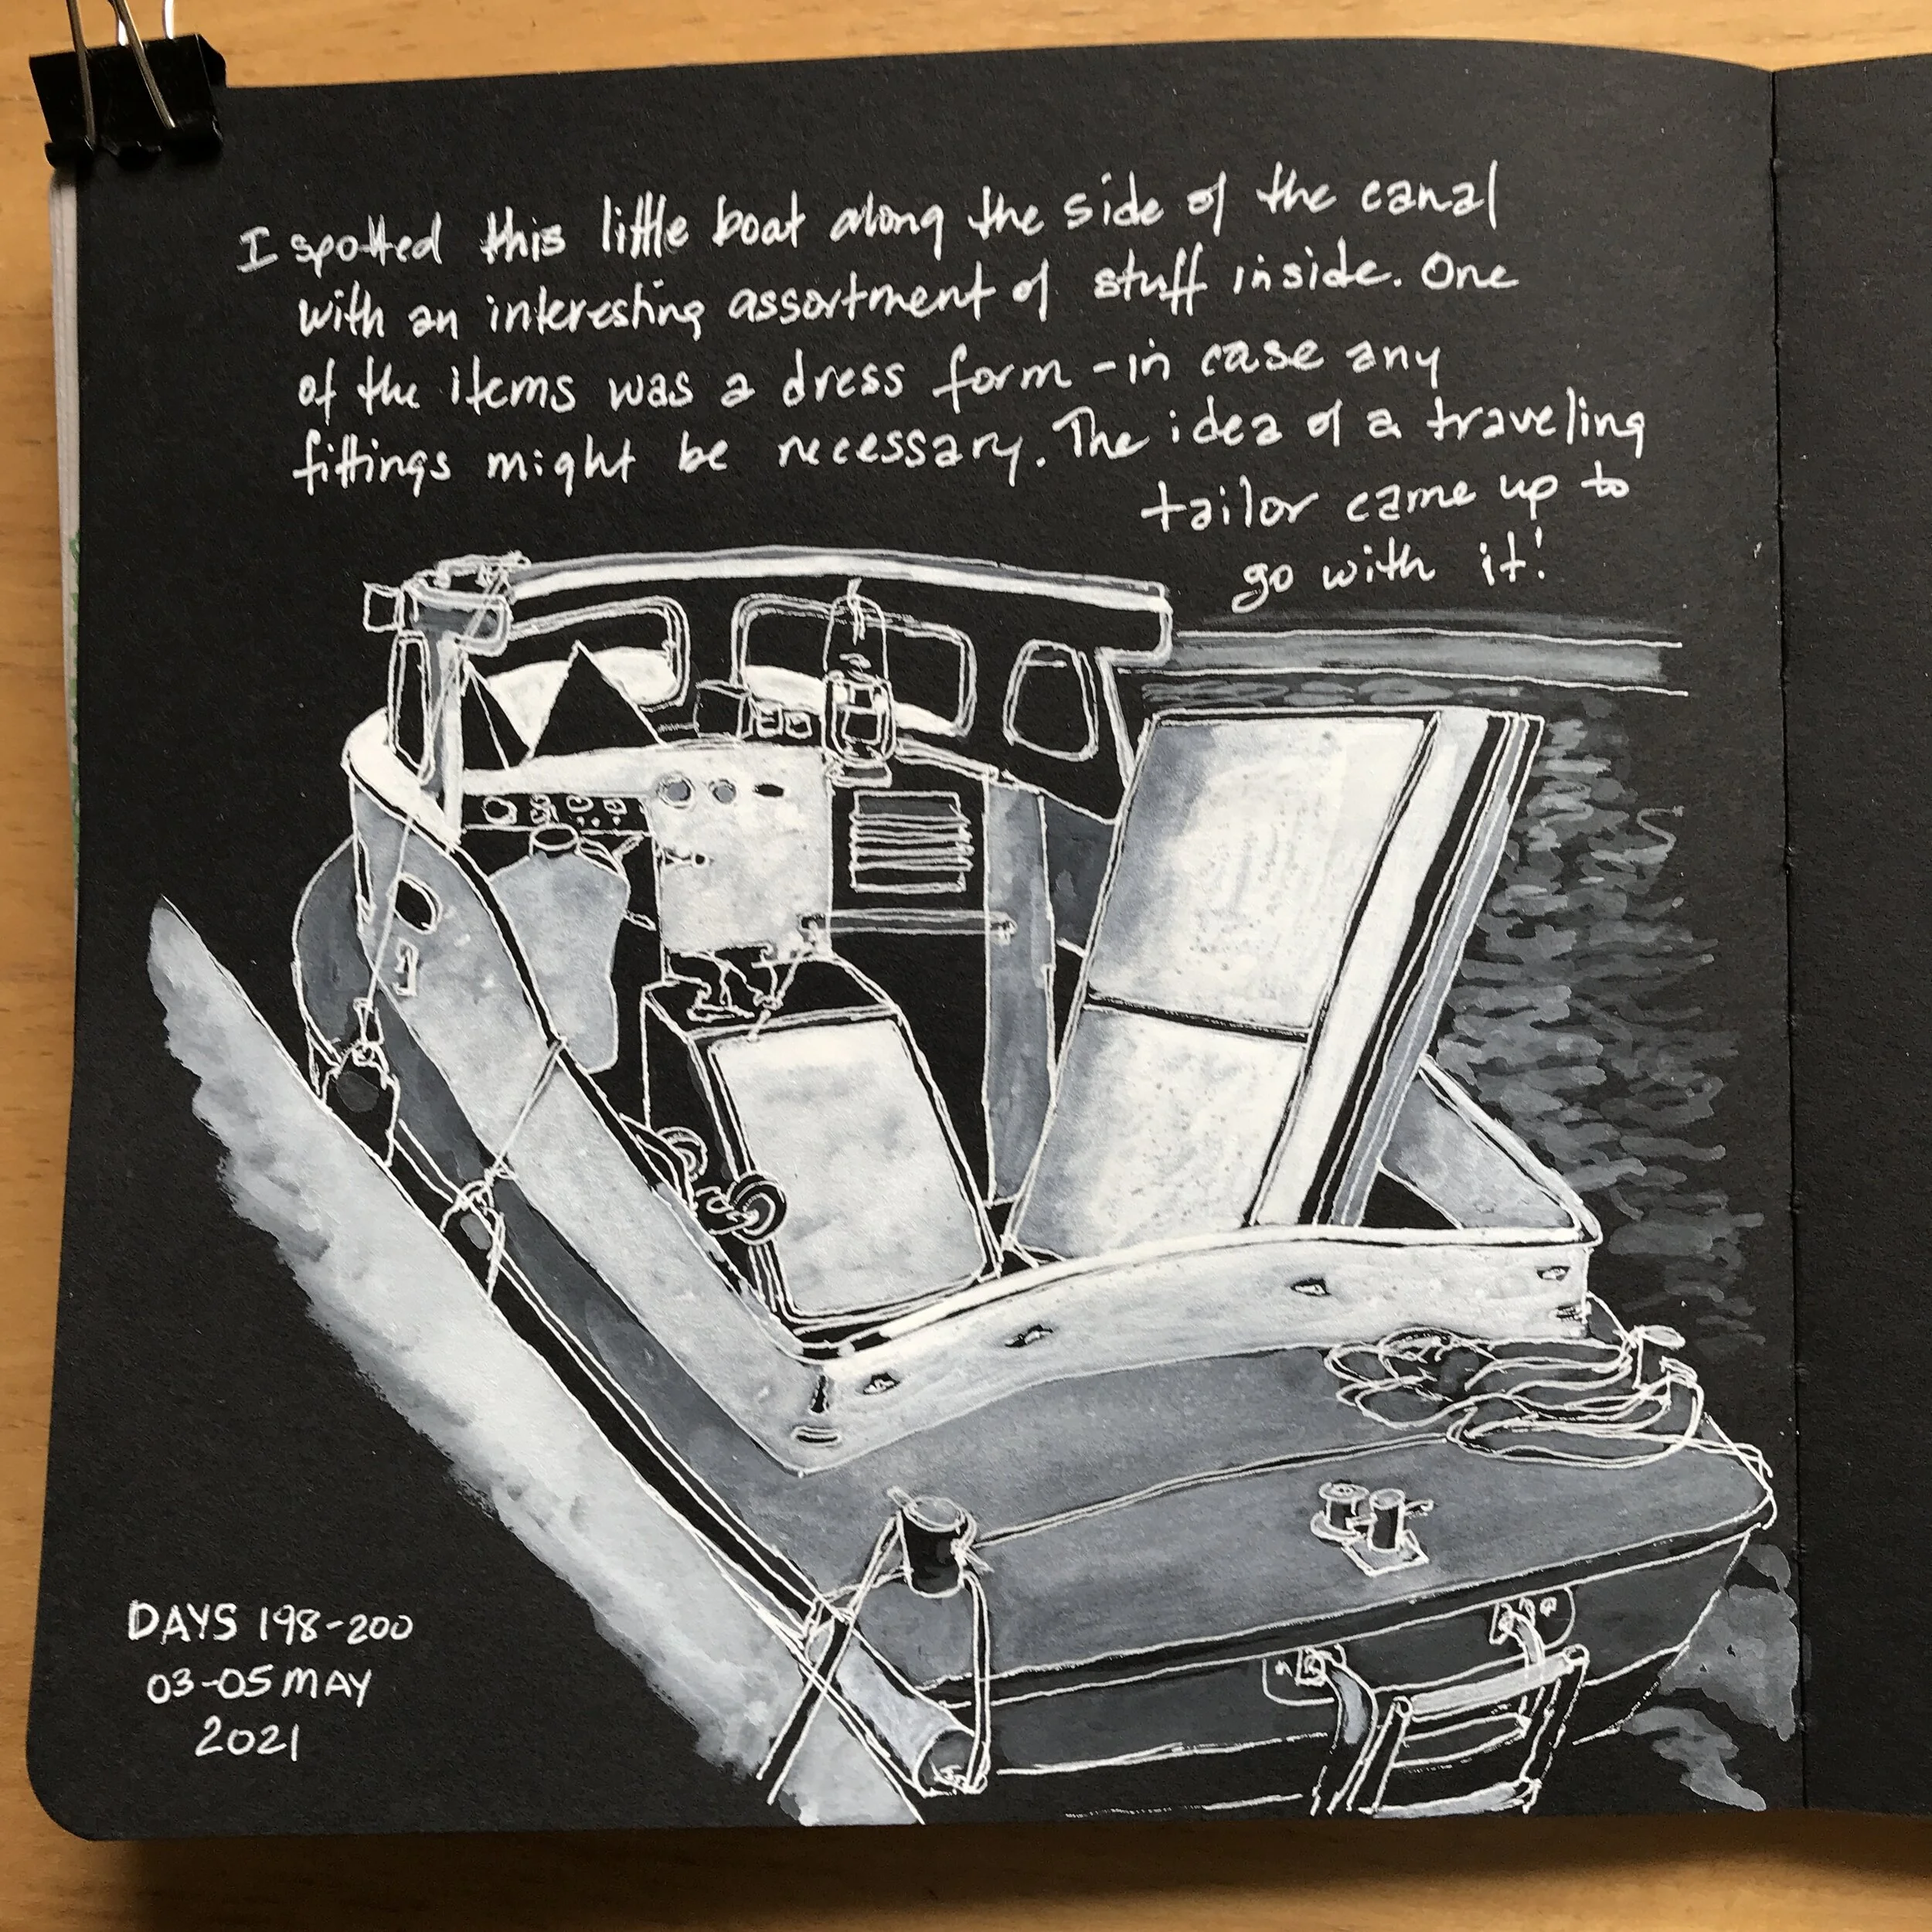 I spotted this little boat along the side of the canal
with an interesting assortment of stuff inside. One
of the items was a dress form - in case any
fittings might be necessary. The idea of a traveling
tailor came up to
go with it!
DAYS 198-200
03-05 MAY
2021